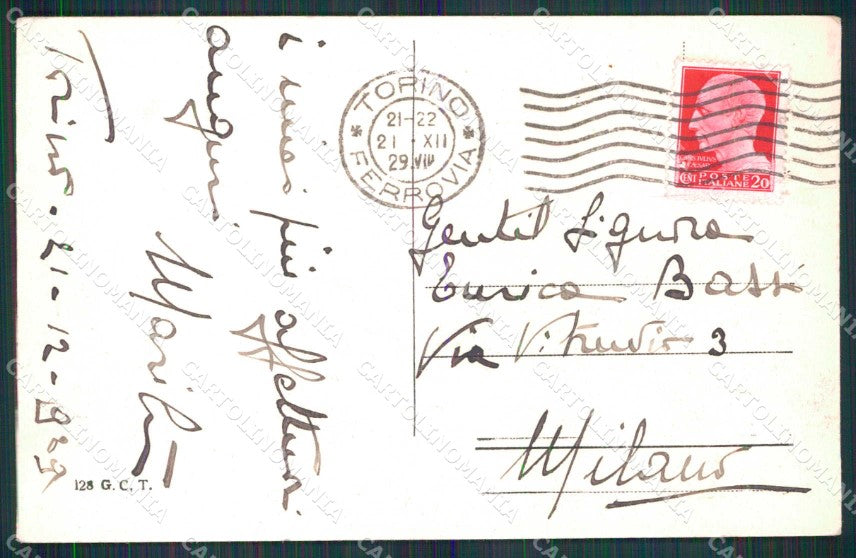 i miei più affettuosi
auguri
Torino - 21-12-929
128 G. C. T.
TORINO
21-22
21 · XII
29.VIII
FERROVIA
POSTE
CENT ITALIANE 20
Gentil Signora
Enrica Bassi
Via Vitruvio 3
Milano
CARTOLINOMANIA